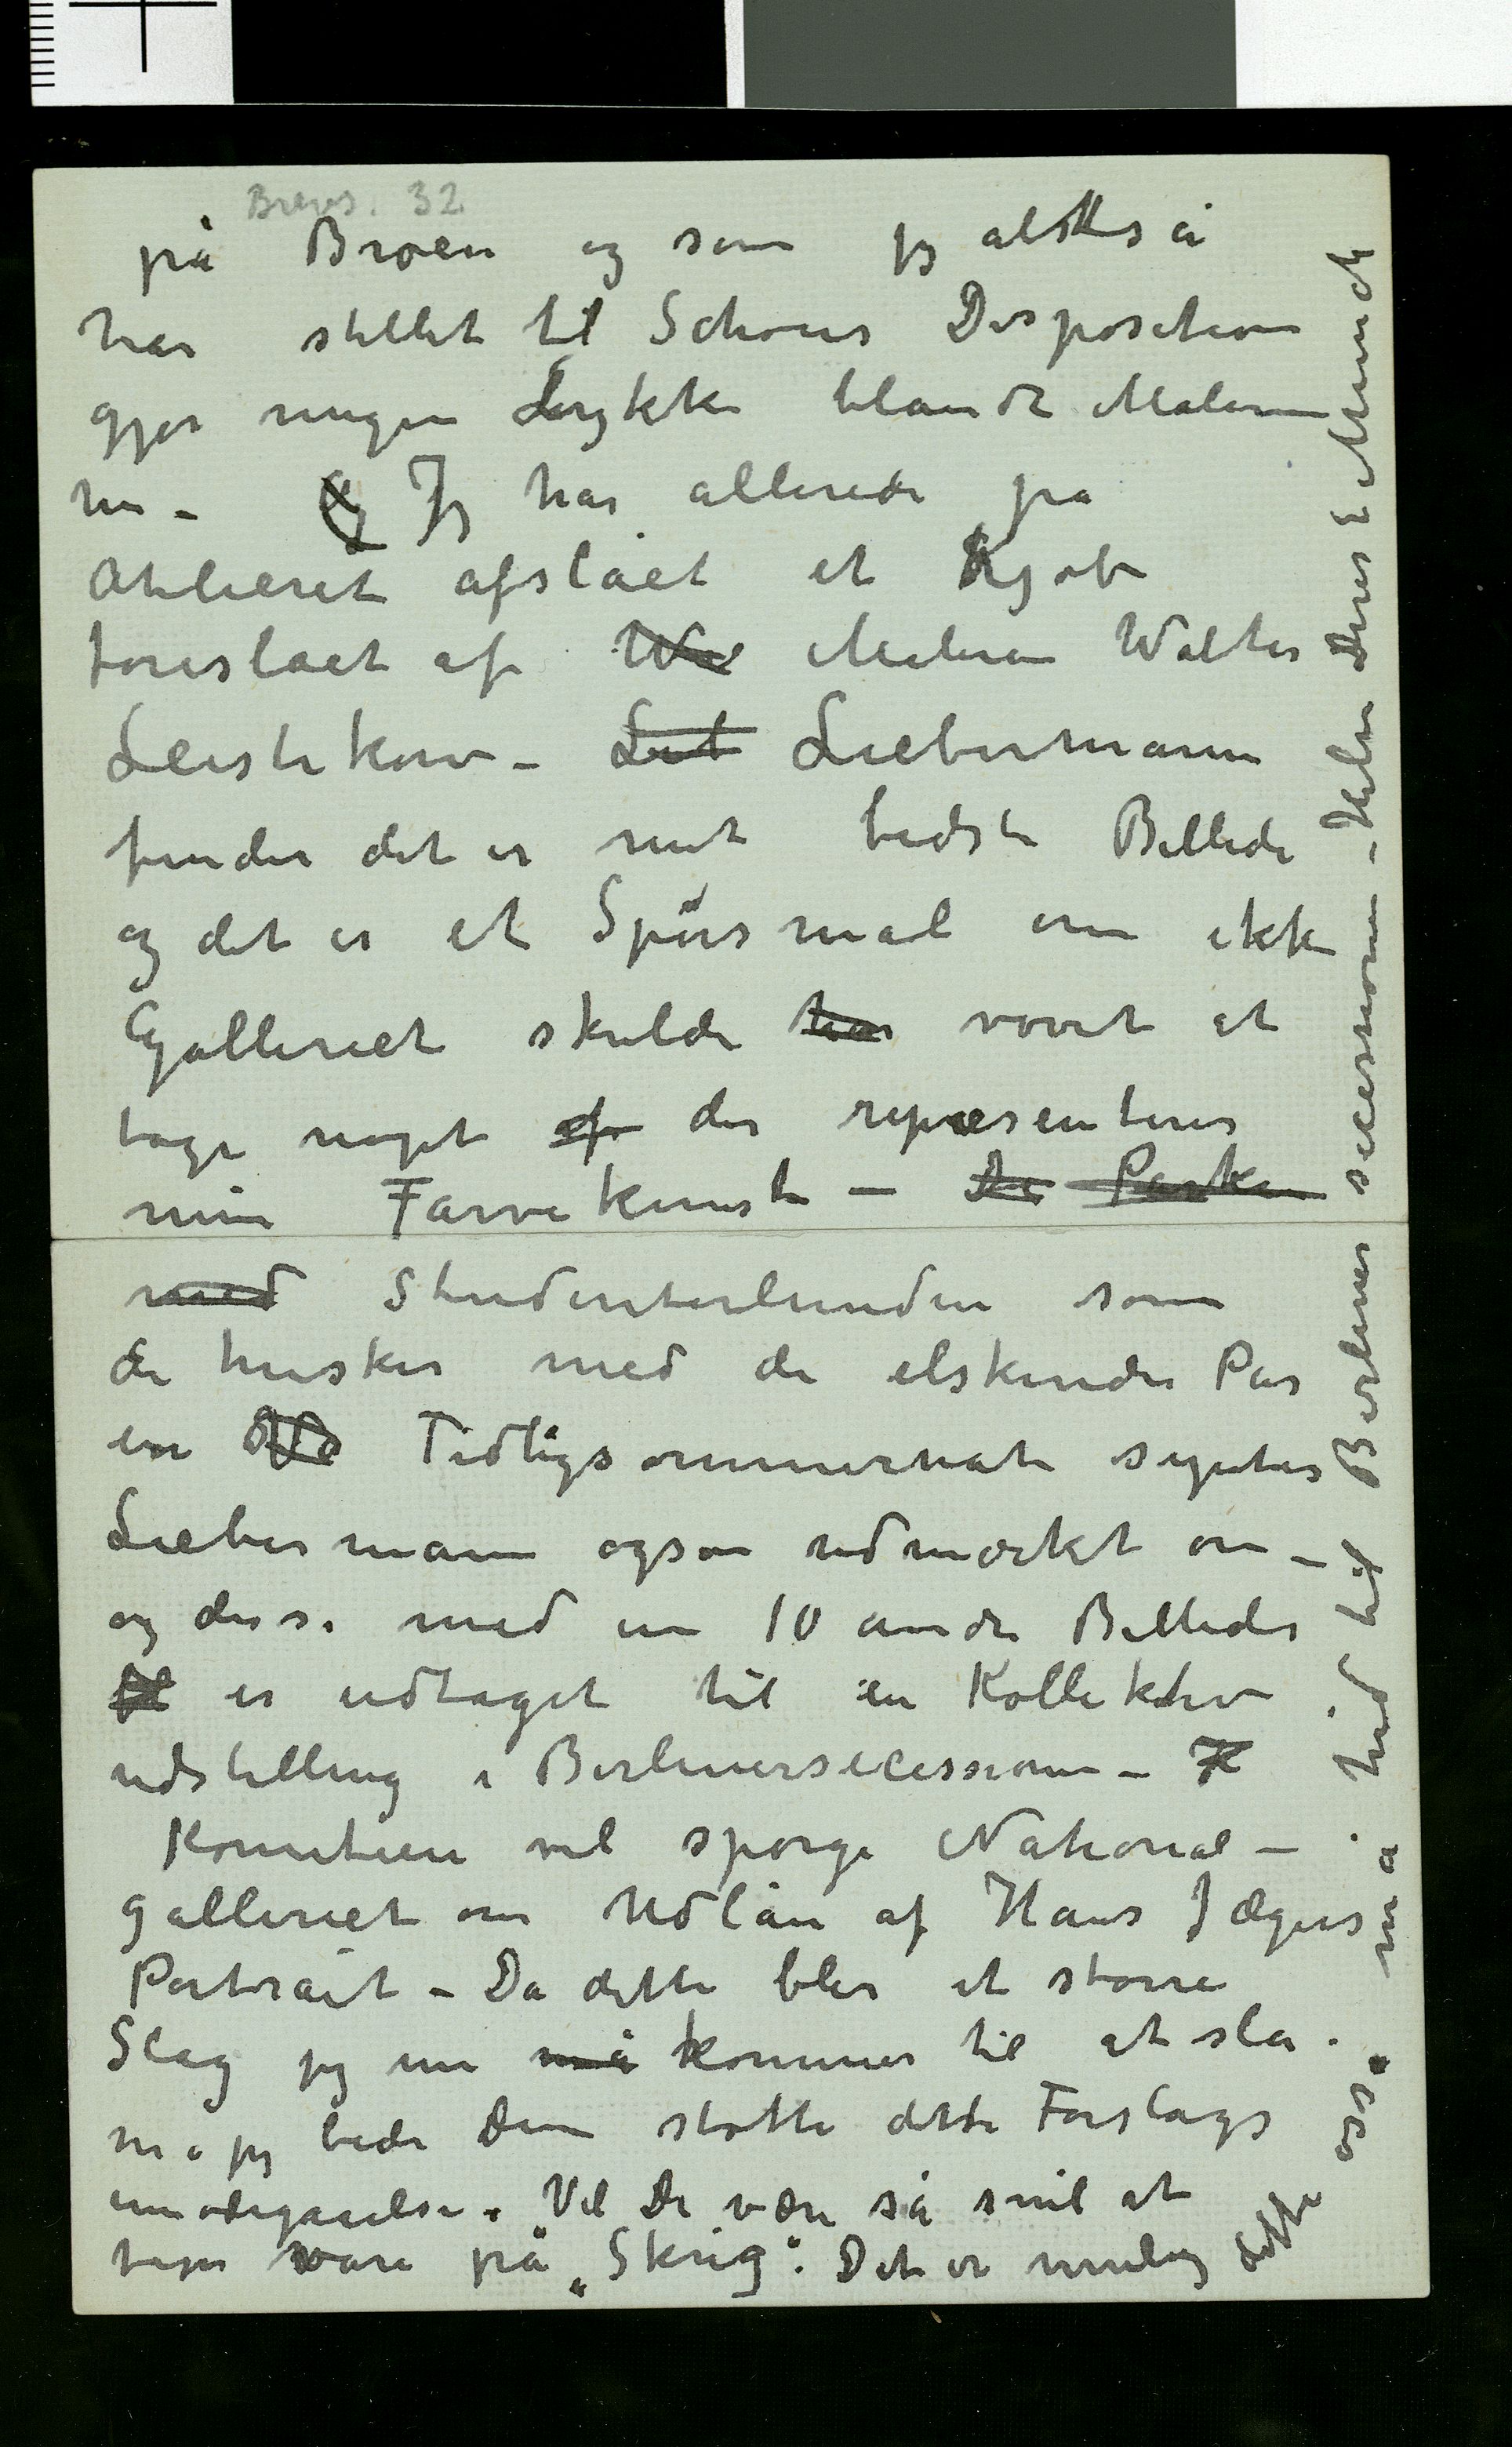 Brevs. 32.
på Broen og som jeg altså
har stillet til Schous Disposition
gjør megen Lykke blandt Malerne
her – Og Jeg har allerede på
Atelieret afslået et Kjøb
foreslået af Maleren Walter
Leistikow – Liebermann
finder det er mit bedste Billede
og det er et Spørsmål om ikke
Galleriet skulde have vovet at
tage noget af der repræsenterer
min Farvekunst – De Parken
med Studenterlunden som
De husker med de elskende Par
en Tidligsommernat syntes
Liebermann også udmærket om –
og disse med en 10 andre Billeder
er udtaget til en Kollektiv
udstilling i Berlinersecessionen –
Komiteen vil spørge National-
galleriet om Udlån af Hans Jægers
Portrait – Da dette blir et større
Slag jeg nu må kommer til at slå.
må jeg bede Dem støtte dette Forslags
imødegåelse. Vil De være så snil at
tage vare på "Skrig". Det er mulig dette
også må hid til Berliner secessionen – Hilsen Deres E Munch